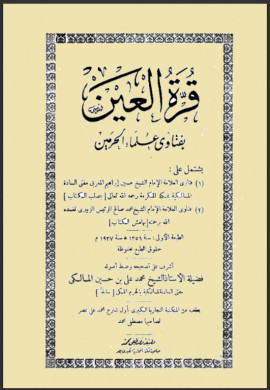 قُرَّةُ العَيْن
بفتاوى عُلماء الحَرَمين
يشتمل على :
(١) فتاوى العلامة الإمام الشيخ حسين إبراهيم المغربى مفتى السادة
المالكية بمكة المكرمة رحمه الله تعالى [ صلب الكتاب ]
(٢) فتاوى العلامة الإمام الشيخ محمد صالح الرئيس الزبيرى تغمده
الله برحمته [ بهامش الكتاب ]
الطبعة الأولى : سنة ١٣٥٦ هـ سنة ١٩٣٧ م
حقوق الطبع محفوظة
أشرف على تصحيحه وضبط أصوله
فضيلة الأستاذ الشيخ محمد على بن حسين المالكى
يطلب من المكتبة التجارية الكبرى بأول شارع محمد على بمصر
لصاحبها مصطفى محمد